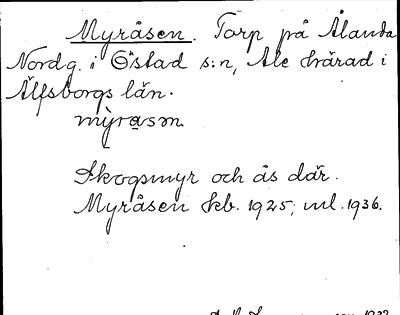 Myråsen. Torp på Ålanda
Nordg. i Östad s:n, Ale härad i
Älfsborgs län.
mỳrasn
Skogsmyr och ås där.
Myråsen kb. 1925; ml. 1936.